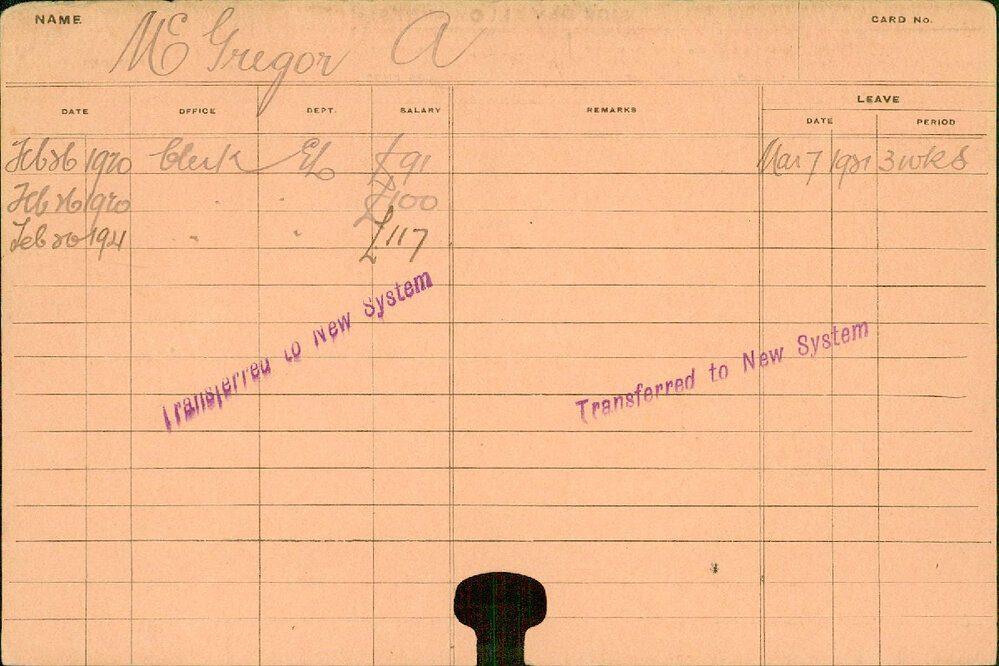 NAME McGregor A CARD No.
DATE OFFICE DEPT. SALARY REMARKS LEAVE
DATE PERIOD
Feb 26 1920 Clerk £91 Mar 7 1921 3 wks
Feb 26 1920 " " £100
Feb 20 1921 " " £117
Transferred to New System
Transferred to New System